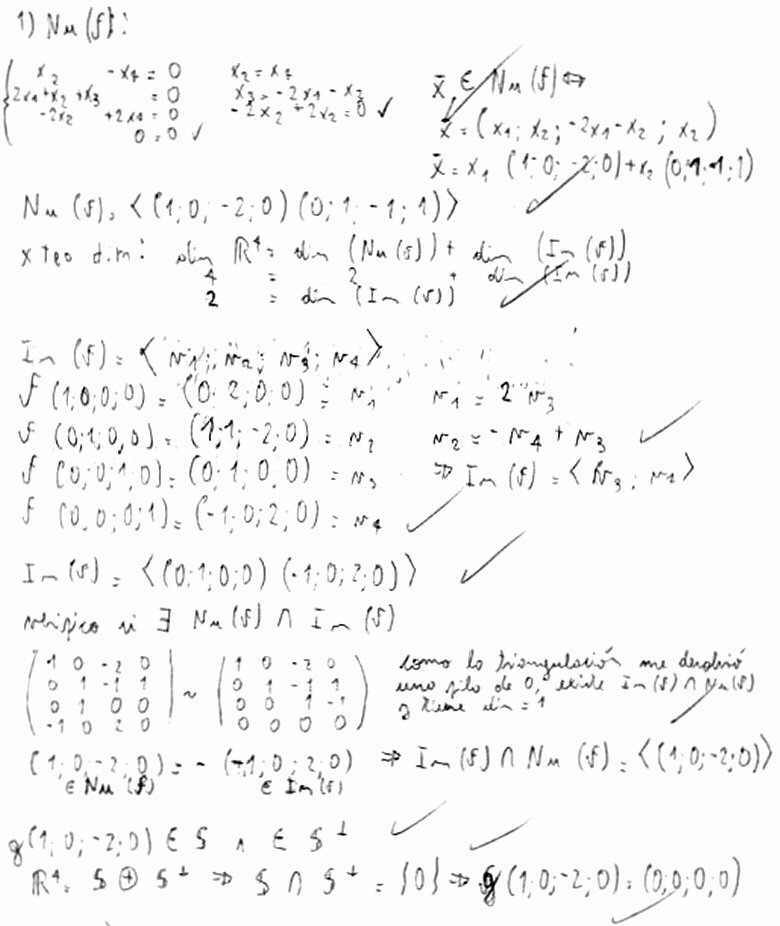 1) Nu (f):
x2 - x4 = 0    x2 = x4
2x1+x2+x3 = 0    x3 = -2x1 - x2
-2x2 +2x4 = 0    -2x2 +2x2 = 0 ✓
0=0 ✓
x̄ ∈ Nu (f) ⇔
x̄ = (x1; x2; -2x1-x2; x2)
x̄ = x1 (1; 0; -2; 0)+x2 (0;1;-1;1)
Nu (f) = <(1; 0; -2; 0) (0; 1; -1; 1)>
x teo dim: dim ℝ⁴ = dim (Nu (f)) + dim (Im (f))
4 = 2 + dim (Im (f))
2 = dim (Im (f))
Im (f) = <v1; v2; v3; v4>
f (1;0;0;0) = (0; 2; 0; 0) = v1    v1 = 2 v3
f (0;1;0;0) = (1;1; -2; 0) = v2    v2 = - v4 + v3
f (0; 0; 1; 0) = (0; 1; 0; 0) = v3    ⇒ Im (f) = < v3; v4 >
f (0; 0; 0; 1) = (-1; 0; 2; 0) = v4
Im (f) = <(0; 1; 0; 0) (-1; 0; 2; 0)>
verifico si ∃ Nu (f) ∩ Im (f)
1 0 -2 0    1 0 -2 0
0 1 -1 1 ~ 0 1 -1 1
0 1 0 0    0 0 1 -1
-1 0 2 0    0 0 0 0
como la triangulación me devolvió
una fila de 0, existe Im (f) ∩ Nu (f)
y tiene dim = 1
(1; 0; -2; 0) = - (-1; 0; 2; 0) ⇒ Im (f) ∩ Nu (f) = <(1; 0; -2; 0)>
∈ Nu (f)    ∈ Im (f)
g (1; 0; -2; 0) ∈ S ∧ ∈ S⊥
ℝ⁴ = S ⊕ S⊥ ⇒ S ∩ S⊥ = {0} ⇒ g (1; 0; -2; 0) = (0; 0; 0; 0)